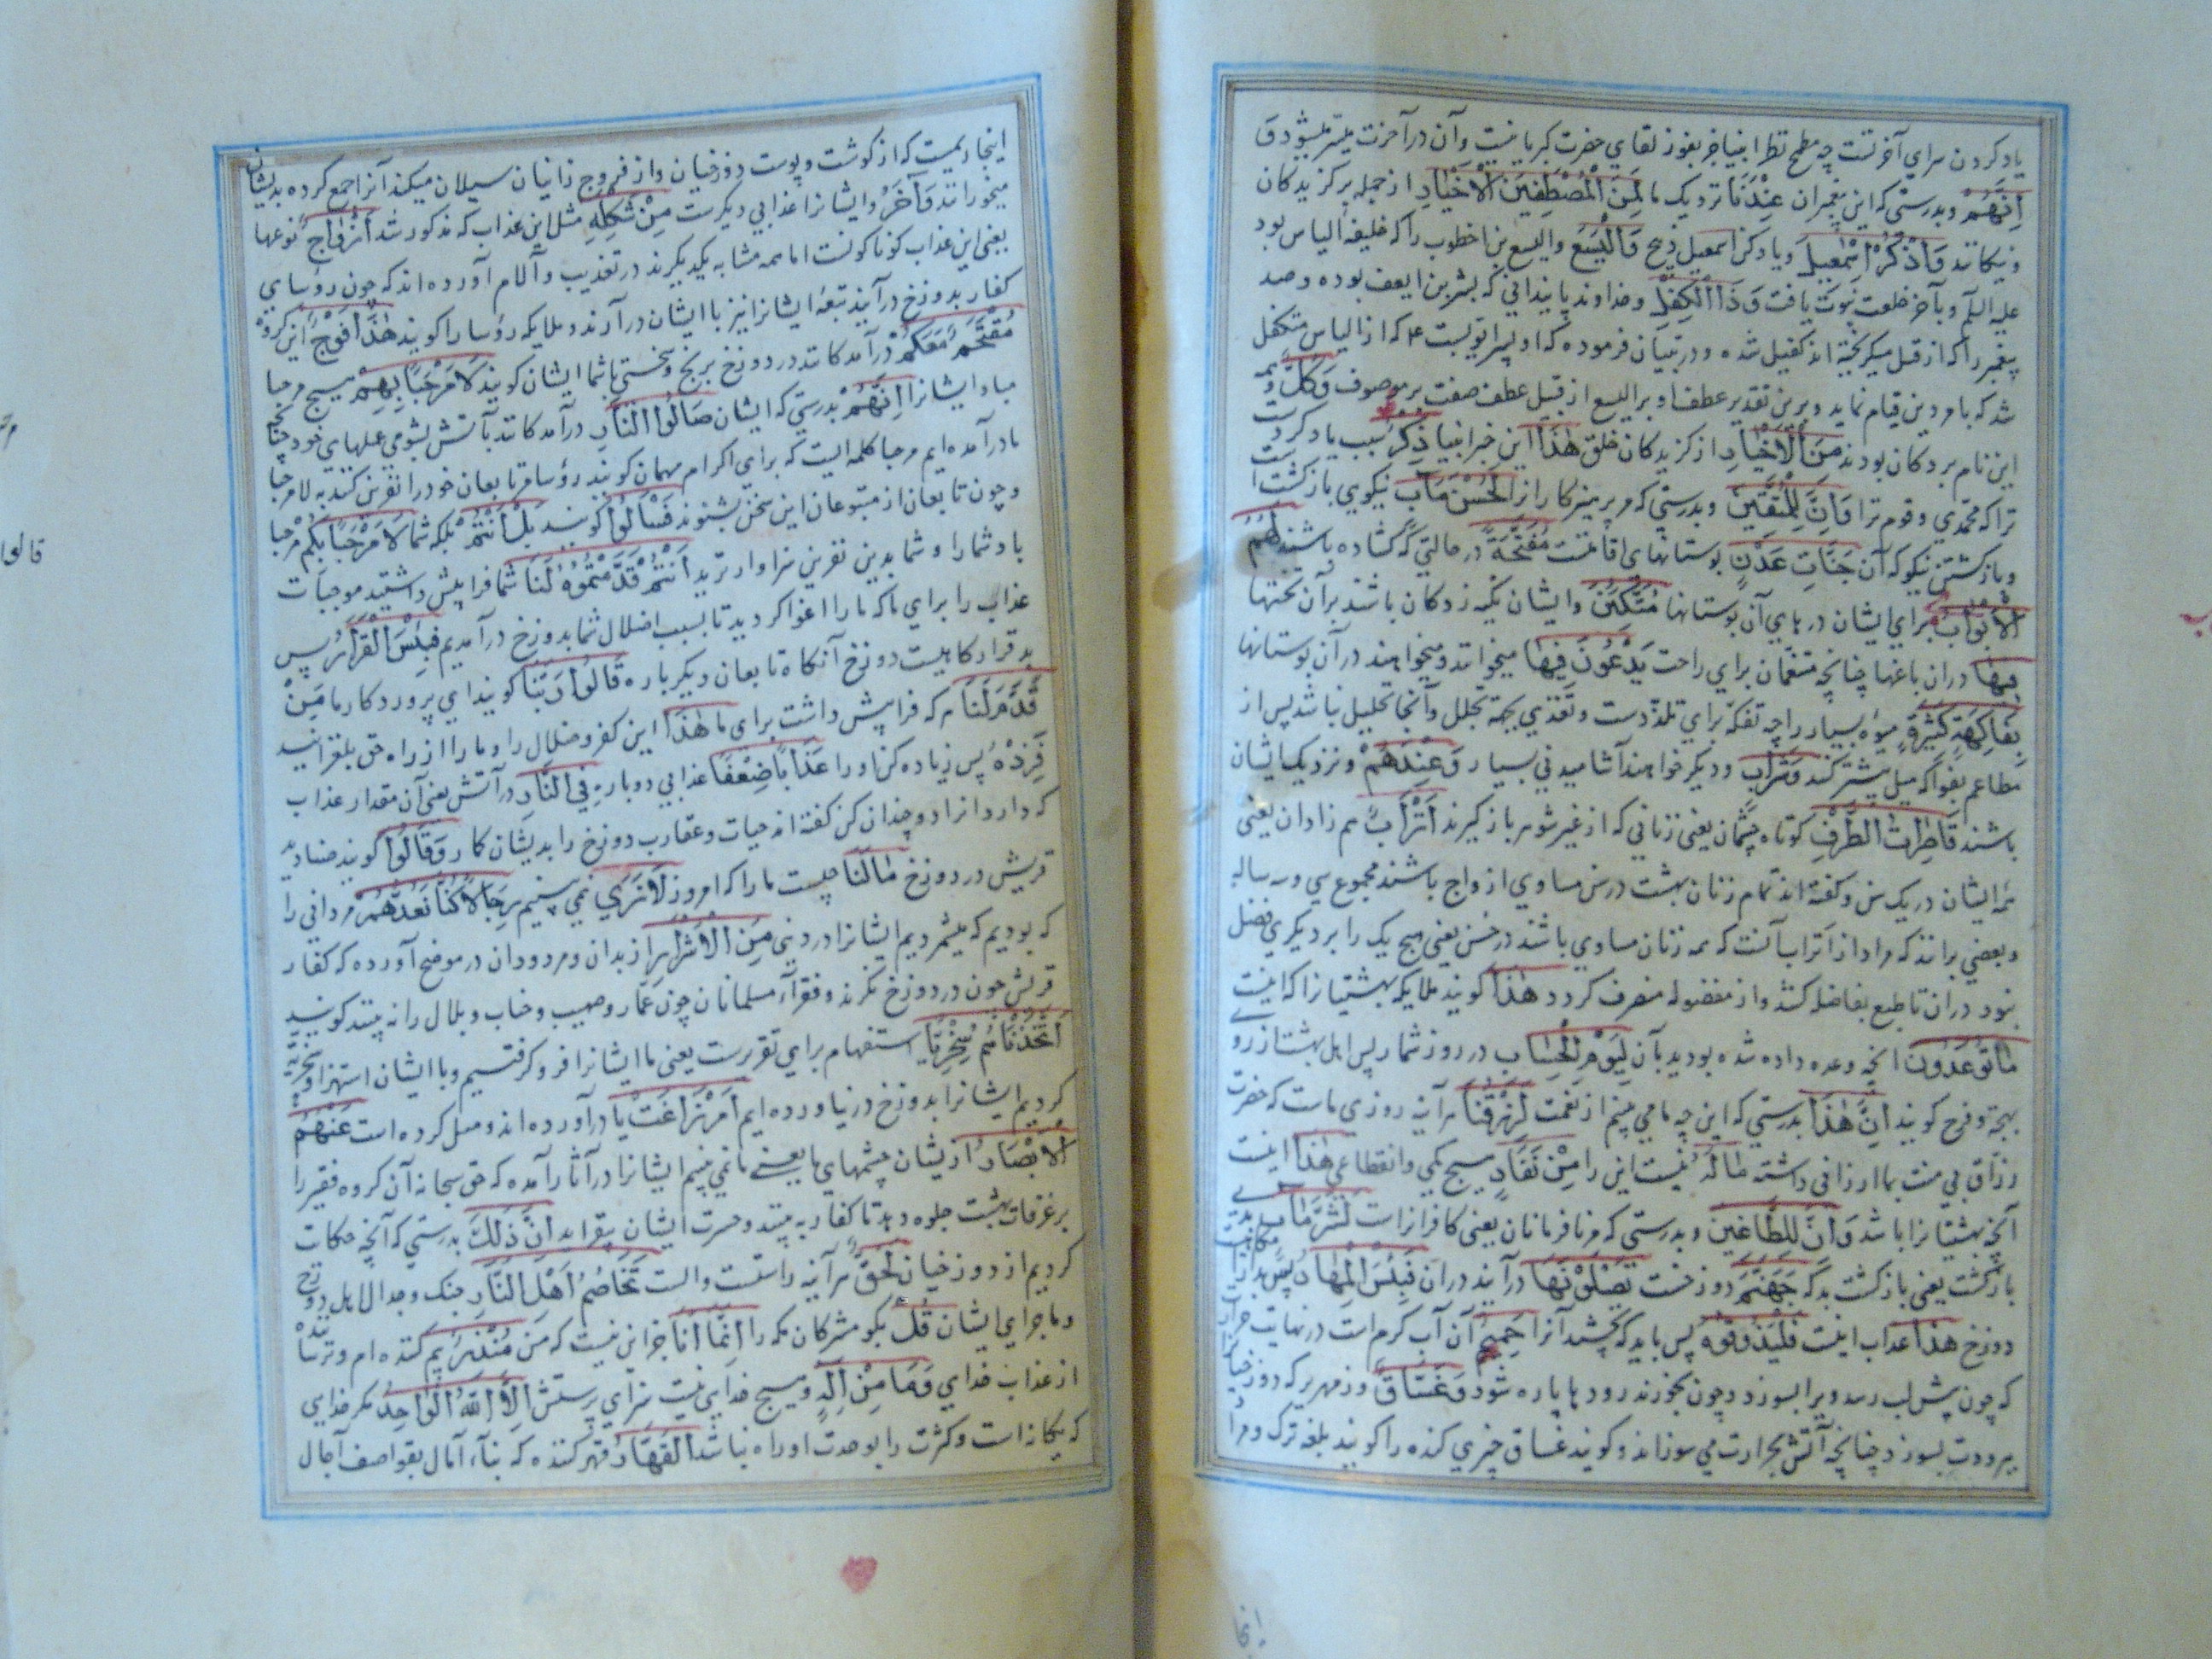 یاد کردن سرای آخرتست چه مطمح نظر انبیا جز بفوز لقای حضرت کبریا نیست وآن در آخرت میسر میشود و
اِنَّهُمْ وبدرستی که این پیغمبران عِنْدَنَا نزدیک ما لَمِنَ الْمُصْطَفَیْنَ الْاَخْیَارِ از جمله برگزیدکان
ونیکانند وَاذْکُرْ اِسْمٰعِیلَ ویاد کن اسمعیل ذبیح وَالْیَسَعَ والیسع بن اخطوب را که خلیفه الیاس بود
علیه السلم وبآخر خلعت نبوت یافت وَذَا الْکِفْلِ وخداوند پایندانی که بشر بن ایوب بوده وصد
پیغمبر را که از قتل میکریخته اند کفیل شده ودر تبیان فرموده که او پسر
شد که بامر دین قیام نماید وبرین تقدیر عطف او بر الیسع از قبیل عطف صفت بر موصوف وَکُلٌّ وهمه
این نام بردکان بودند مِنَ الْاَخْیَارِ از کزیدکان خلق هٰذَا این خبر انبیا ذِکْرٌ سبب یاد کردست
ترا که محمدی وقوم ترا وَاِنَّ لِلْمُتَّقِینَ وبدرستی که مر پرهیزکارانرا لَحُسْنَ مَاٰبٍ نیکویی بازکشت
وبازکشتن نیکو که آن جَنَّاتِ عَدْنٍ بوستانهای اقامتست مُفَتَّحَةً در حالتی که کشاده باشند لَهُمُ
الْاَبْوَابُ برای ایشان درهای آن بوستانها مُتَّکِئِینَ وایشان تکیه زدکان باشند بر آن تختها
فِیهَا دران باغها چنانچه متنعمان برای راحت یَدْعُونَ فِیهَا میخوانند ومیخواهند در آن بوستانها
بِفَاکِهَةٍ کَثِیرَةٍ میوه بسیار را چه تفکه برای تلذذست وتغذی بجهة تحلل وآنجا تحلیل نباشد پس از
مطاعم بفواکه میل بیشتر کنند وَشَرَابٍ ودیکر خواهند آشامیدنی بسیار وَعِنْدَهُمْ ونزدیک ایشان
باشند قَاصِرَاتُ الطَّرْفِ کوتاه چشمان یعنی زنانی که از غیر شوهر باز کیرند اَتْرَابٌ هم زادان یعنی
همه ایشان در یک سن وکفته اند تمام زنان بهشت درسن مساوی ازواج باشند مجموع سی وسه ساله
وبعضی برانند که مراد از اتراب آنست که همه زنان مساوی باشند در حسن یعنی هیچ یک را بر دیکری فضل
نبود دران تا طبع بفاضله کشد واز مفضوله منصرف کردد هٰذَا کویند ملایکه بهشتیانرا که اینست
مَا تُوعَدُونَ انچه وعده داده شده بودید بآن لِیَوْمِ الْحِسَابِ در روز شمار پس اهل بهشت از رو
بهجة وفرح کویند اِنَّ هٰذَا بدرستی که این چه ما می بینم از نعمت لَرِزْقُنَا هر آینه روزی ماست که حضرت
رزاق بی منت بما ارزانی داشته مَا لَهُ نیست این را مِنْ نَفَادٍ هیچ کمی وانقطاعی هٰذَا اینست
آنچه بهشتیانرا باشد وَاِنَّ لِلطَّاغِینَ وبدرستی که مر نافرمانان یعنی کافرانراست لَشَرَّ مَاٰبٍ
بازکشت یعنی بازکشت بد که جَهَنَّمَ دوزخست یَصْلَوْنَهَا درآیند دران فَبِئْسَ الْمِهَادُ
دوزخ هٰذَا عذاب اینست فَلْیَذُوقُوهُ پس باید که بچشند آنرا حَمِیمٌ آن آب کرم است در نهایت حرارت
که چون پیش لب رسد ویرا بسوزد وچون بخورند رودها پاره شود وَغَسَّاقٌ وزمهریر که دوزخیانرا
ببرودت بسوزد چنانچه آتش بحرارت می سوزاند وکویند غساق چیزی کنده را کویند بلغه ترک ومراد
اینجا
اینجا ریمیست که از کوشت وپوست دوزخیان واز فروج زانیان سیلان میکند آنرا جمع کرده بدیشان
میخورانند وَاٰخَرُ وایشانرا عذابی دیکرست مِنْ شَکْلِهِ مثل این عذاب که مذکور شد اَزْوَاجٌ نوعها
یعنی این عذاب کوناکونست اما همه مشابه یکدیکرند در تعذیب وآلام آورده اند که چون رؤسای
کفار بدوزخ درآیند تبعه ایشانرا نیز با ایشان درآرند وملایکه رؤسا را کویند هٰذَا فَوْجٌ این کروه
مُقْتَحِمٌ مَعَکُمْ درآمدکانند در دوزخ برنج وسختی باشما ایشان کویند لَا مَرْحَبًا بِهِمْ هیچ مرحبا
مباد ایشانرا اِنَّهُمْ بدرستی که ایشان صَالُوا النَّارِ درآمدکانند بآتش بشومی عملهای خود چنانچه
ما درآمده ایم مرحبا کلمه ایست که برای اکرام مهمان کویند رؤسا مر تابعان خود را نفرین کنند به لا مرحبا
وچون تابعان از متبوعان این سخن بشنوند قَالُوا کویند بَلْ اَنْتُمْ بلکه شما لَا مَرْحَبًا بِکُمْ مرحبا
باد شما را وشما بدین نفرین سزاوارترید اَنْتُمْ قَدَّمْتُمُوهُ لَنَا شما فرا پیش داشتید موجبات
عذاب را برای ما که ما را اغوا کردید تا بسبب اضلال شما بدوزخ درآمدیم فَبِئْسَ الْقَرَارُ پس
بد قرارکاهیست دوزخ آنکاه تابعان دیکرباره قَالُوا رَبَّنَا کویند ای پروردکار ما مَنْ
قَدَّمَ لَنَا هر که فرا پیش داشت برای ما هٰذَا این کفر وضلال را وما را از راه حق بلغزانید
فَزِدْهُ پس زیاده کن او را عَذَابًا ضِعْفًا عذابی دوباره فِی النَّارِ در آتش یعنی آن مقدار عذاب
که دارد انرا دو چندان کن کفته اند حیات وعقارب دوزخ را بدیشان کمارد وَقَالُوا کویند صنادید
قریش در دوزخ مَا لَنَا چیست ما را که امروز لَا نَرٰی نمی بینیم رِجَالًا کُنَّا نَعُدُّهُمْ مردانی را
که بودیم که میشمردیم ایشانرا در دنیی مِنَ الْاَشْرَارِ از بدان ومردودان در موضح آورده که کفار
قریش چون در دوزخ نکرند وفقراء مسلمانان چون عمار وصهیب وخباب وبلال را نه بینند کویند
اَتَّخَذْنَاهُمْ سِخْرِیًّا استفهام برای تقریرست یعنی ما ایشانرا فرو کرفتیم وبا ایشان استهزا وسخریه
کردیم ایشانرا بدوزخ درنیاورده ایم اَمْ زَاغَتْ یا درآورده اند ومیل کرده است عَنْهُمُ
الْاَبْصَارُ ازیشان چشمهای ما یعنی ما نمی بینیم ایشانرا در آثار آمده که حق سبحانه آن کروه فقیر را
بر غرفات بهشت جلوه دهد تا کفار به بینند وحسرت ایشان بیفزاید اِنَّ ذٰلِکَ بدرستی که آنچه حکایت
کردیم از دوزخیان لَحَقٌّ هر آینه راستست وآنست تَخَاصُمُ اَهْلِ النَّارِ جنک وجدال اهل دوزخ
وماجرای ایشان قُلْ بکو مشرکان مکه را اِنَّمَا اَنَا جز این نیست که من مُنْذِرٌ بیم کننده ام وترساننده
از عذاب خدای وَمَا مِنْ اِلٰهٍ وهیچ خدایی نیست سزای پرستش اِلَّا اللّٰهُ الْوَاحِدُ مکر خدایی
که یکانه است وکثرت را بوحدت او راه نباشد الْقَهَّارُ قهر کننده که بناء آمال بقواصف آجال
قالوا